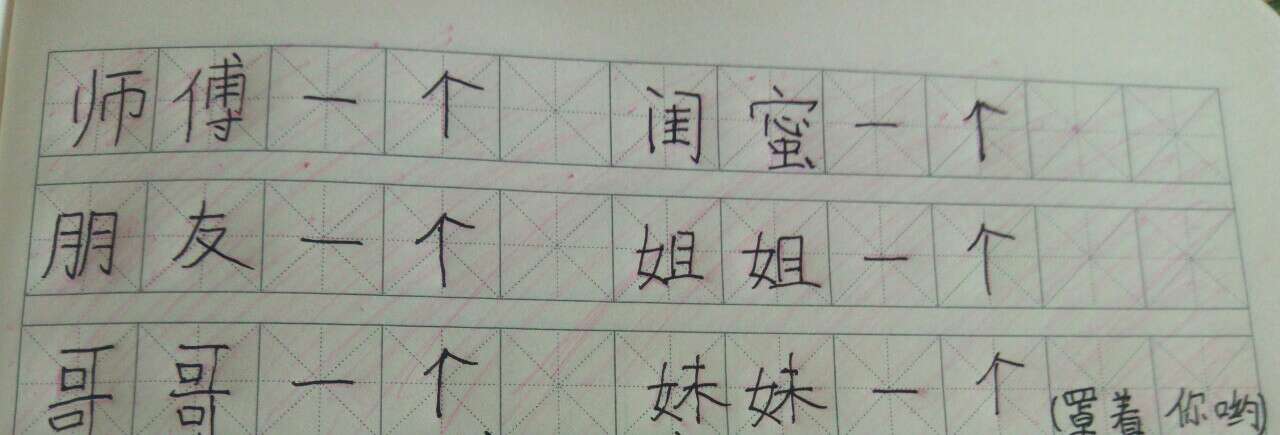 师傅一个 闺蜜一个
朋友一个 姐姐一个
哥哥一个 妹妹一个(罩着你哟)